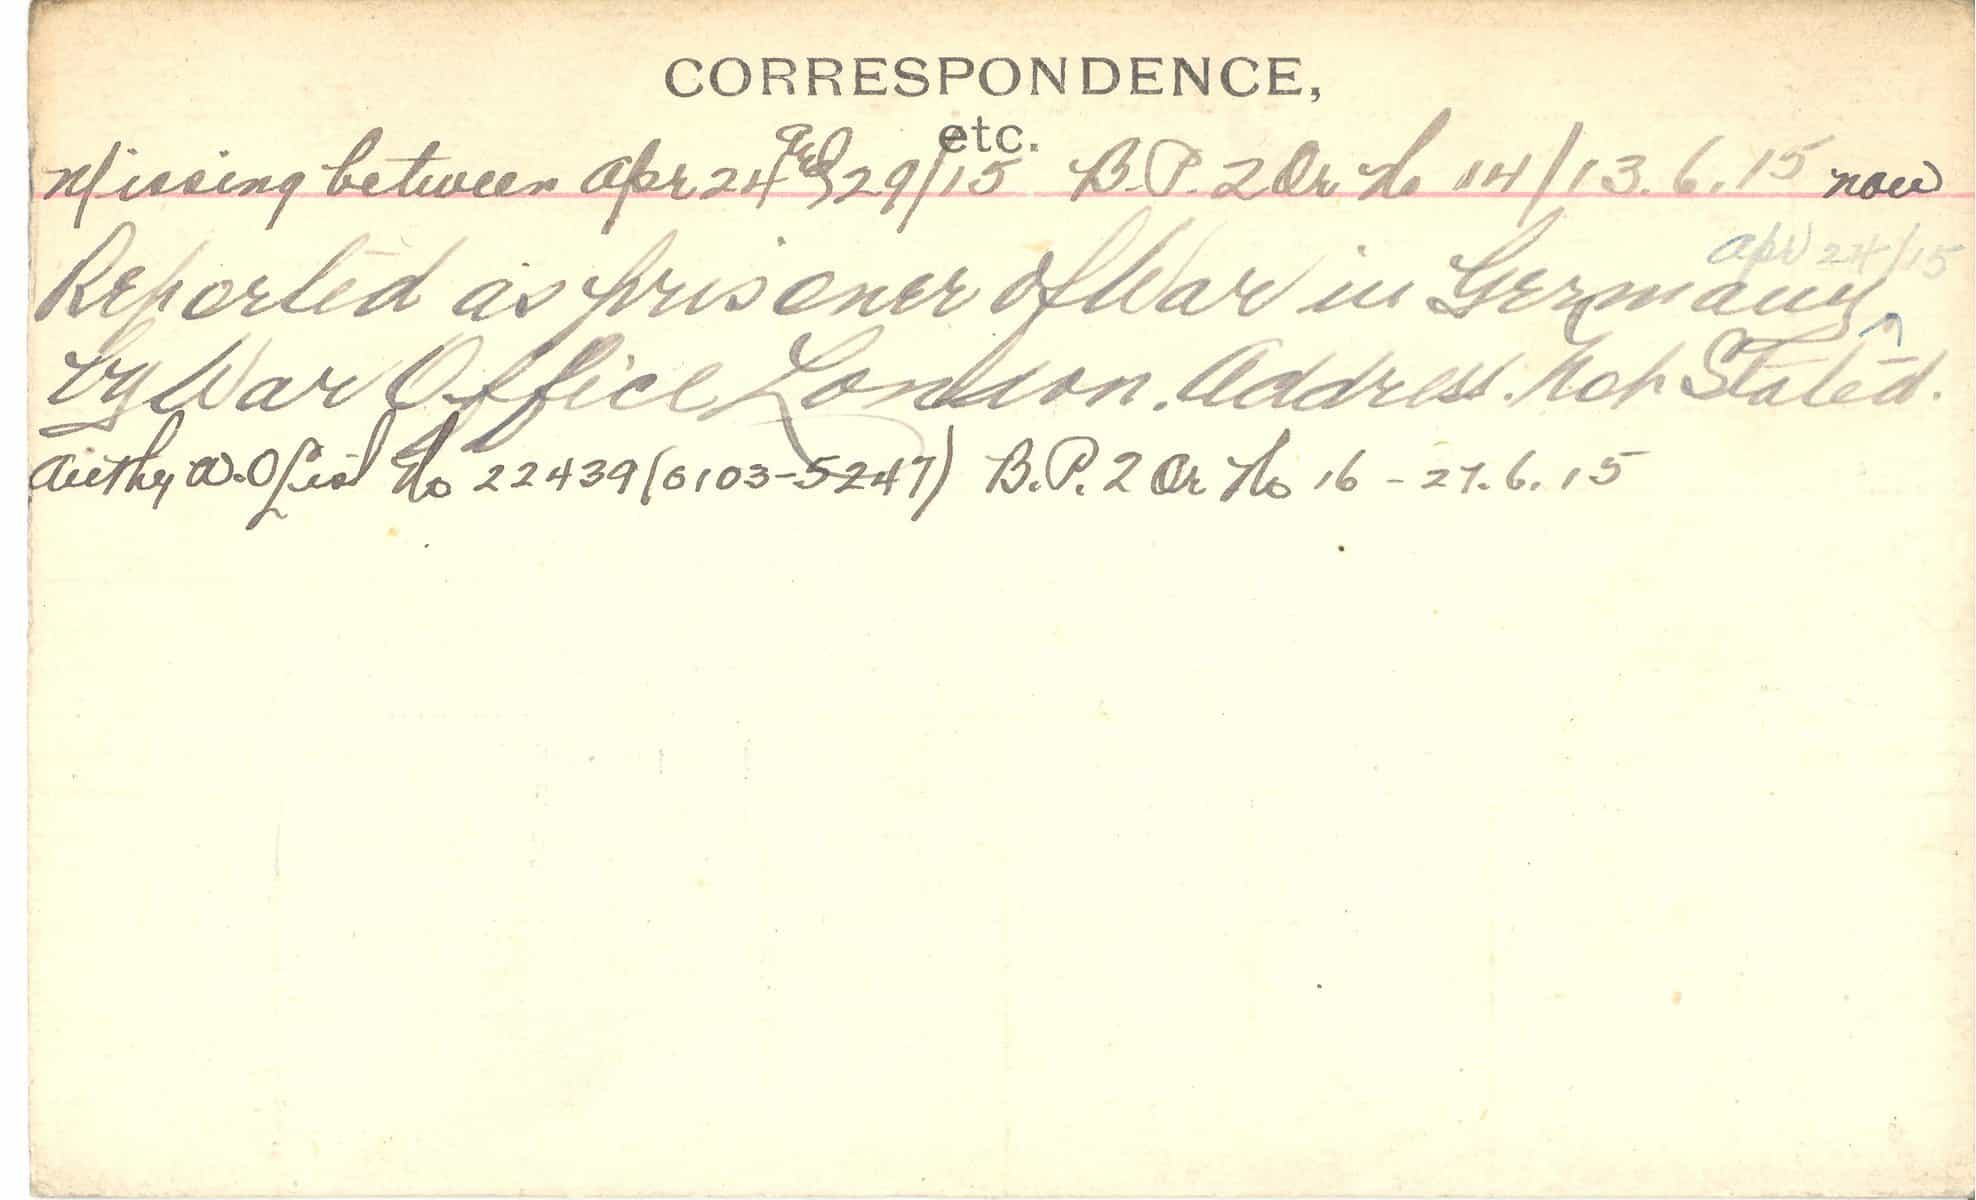 CORRESPONDENCE,
etc.
Missing between Apr 24 and 29/15 B.P. 2 Or No 14/13.6.15 now
Apr 24/15
Reported as prisoner of War in Germany
by War Office London. Address. Not Stated.
Authy W.O List No 22439 (0103-5247) B.P. 2 Or No 16 - 27.6.15